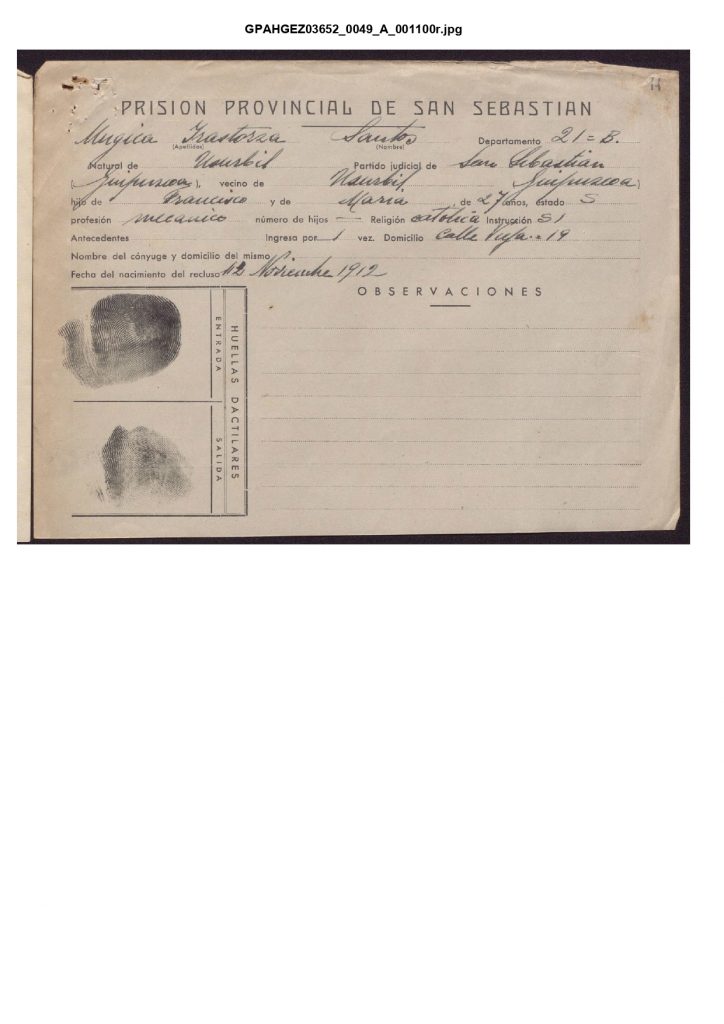 GPAHGEZ03652_0049_A_001100r.jpg
11
PRISION PROVINCIAL DE SAN SEBASTIAN
Mugica Irastorza Santos Departamento 21=B.
(Apellidos) (Nombre)
Natural de Usurbil Partido judicial de San Sebastian
(Guipuzcoa), vecino de Usurbil Guipuzcoa)
hijo de Francisco y de Maria de 27 años, estado S
profesión mecanico número de hijos — Religión catolica Instrucción SI
Antecedentes Ingresa por 1 vez. Domicilio Calle =19
Nombre del cónyuge y domicilio del mismo
Fecha del nacimiento del recluso 12 Noviembre 1912
OBSERVACIONES
HUELLAS DACTILARES
ENTRADA
SALIDA